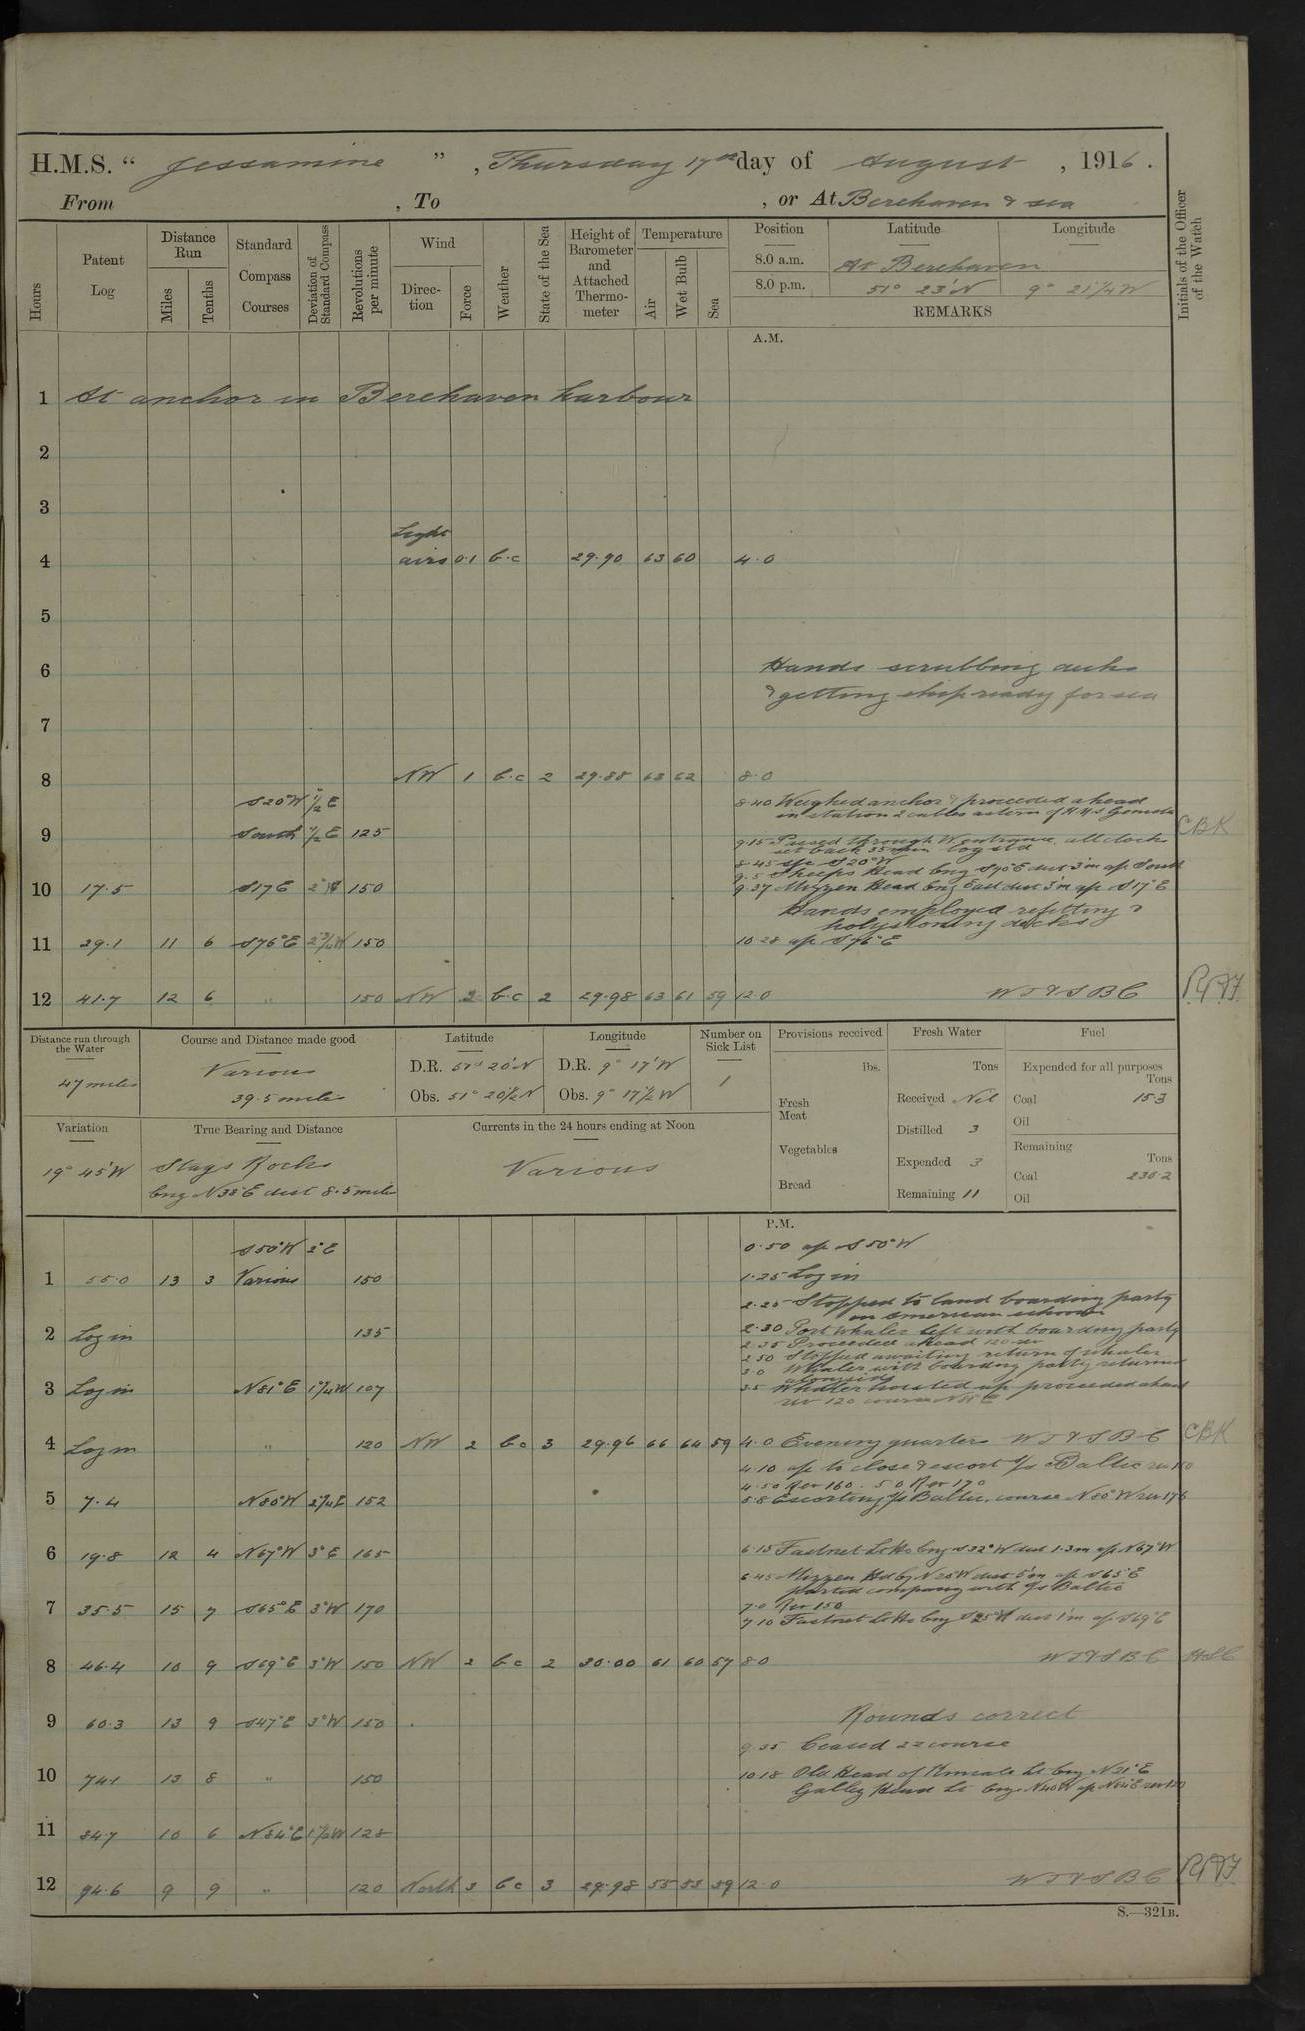 H.M.S. “ Jessamine ” , Thursday 17th day of August , 1916 .
From , To , or At Berehaven & sea
Hours
Patent Log
Distance Run
Miles
Tenths
Standard Compass Courses
Deviation of Standard Compass
Revolutions per minute
Wind
Direction
Force
Weather
State of the Sea
Height of Barometer and Attached Thermometer
Temperature
Air
Wet Bulb
Sea
Position Latitude Longitude
8.0 a.m. At Berehaven
8.0 p.m. 51° 23' N 9° 21¼ W
REMARKS
Initials of the Officer of the Watch
A.M.
1 At anchor in Berehaven harbour
2
3
Light
4 airs 0.1 b.c 29.90 63 60 4.0
5
6 Hands scrubbing decks
& getting ship ready for sea
7
8 NW 1 b.c 2 29.88 63 62 8.0
S20°W ½ E 8.40 Weighed anchor & proceeded ahead
in station 2 cables astern of HMS
9 South ½ E 125 CBK
9.15 Passed through W entrance. all clocks
set back 35 min log std
8.45 S20°W
9.5 Sheeps Head brg S70°E dist 3'm a/c South
10 17.5 S17E 150 9.37 Mizzen Head brg East dist 3'm a/c S17°E
Hands employed refitting &
holystoning decks
11 29.1 11 6 S76°E 2¾W 150 10.28 a/c S76°E
12 41.7 12 6 " 150 NW 2 b.c 2 29.98 63 61 59 12.0 W T & S B C
Distance run through the Water
47 miles
Course and Distance made good
Various
39.5 miles
Latitude
D.R. 51° 20' N
Obs. 51° 20½ N
Longitude
D.R. 9° 17' W
Obs. 9° 17½ W
Number on Sick List
1
Provisions received
lbs.
Fresh Meat
Vegetables
Bread
Fresh Water
Tons
Received Nil
Distilled 3
Expended 3
Remaining 11
Fuel
Expended for all purposes
Tons
Coal 15.3
Oil
Remaining
Tons
Coal 236.2
Oil
Variation
19° 45' W
True Bearing and Distance
Stags Rocks
brg N38°E dist 8.5 miles
Currents in the 24 hours ending at Noon
Various
P.M.
S50°W 2°E 0.50 a/c S50°W
1 55.0 13 3 Various 150 1.25 Log in
2.25 Stopped to land boarding party
on American schooner
2 Log in 135 2.30 Port whaler left with boarding party
2.35 Proceeded ahead 120 rev
2.50 Stopped awaiting return of whaler
3.0 Whaler with boarding party returned
alongside
3 Log in N81°E 1¼W 107 3.5 Whaler hoisted up proceeded ahead
rev 120 course N81°E
4 Log in " 120 NW 2 b c 3 29.96 66 64 59 4.0 Evening quarters W T & S B C CBK
4.10 a/c to close & escort s/s Baltic rev 150
4.50 Rev 160. 5.0 Rev 170
5 7.4 N80°W 2¼E 152 5.8 Escorting s/s Baltic, course N80°W rev 176
6 19.8 12 4 N67°W 3°E 165 6.15 Fastnet Lt Ho brg S32°W dist 1.3m a/c N67°W
6.45 Mizzen Hd brg N28W dist 5'm a/c S65°E
parted company with s/s Baltic
7.0 Rev 150
7 35.5 15 7 S65°E 3°W 170 7.10 Fastnet Lt Ho brg S25°W dist 1'm a/c S69°E
8 46.4 10 9 S69°E 3°W 150 NW 2 b c 2 30.00 61 60 57 8.0 W T & S B C
9 60.3 13 9 S47°E 3°W 150 Rounds correct
9.35 Ceased course
10 74.1 13 8 " 150 10.18 Old Head of Kinsale Lt brg N21°E
Galley Head Lt brg N40W a/c
11 84.7 10 6 N84°E 1½W 128
12 94.6 9 9 " 120 North 3 b c 3 29.98 55 53 59 12.0 W T & S B C
S.—321B.